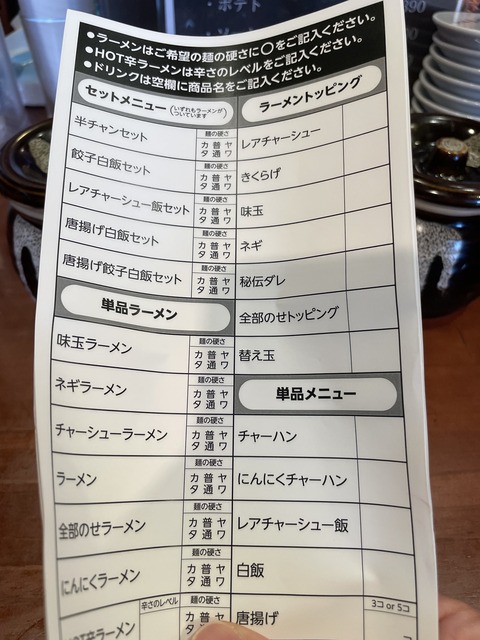 ●ラーメンはご希望の麺の硬さに○をご記入ください。
●HOT辛ラーメンは辛さのレベルをご記入ください。
●ドリンクは空欄に商品名をご記入ください。
セットメニュー (いずれもラーメンがついています)
半チャンセット 麺の硬さ カタ 普通 ヤワ
餃子白飯セット 麺の硬さ カタ 普通 ヤワ
レアチャーシュー飯セット 麺の硬さ カタ 普通 ヤワ
唐揚げ白飯セット 麺の硬さ カタ 普通 ヤワ
唐揚げ餃子白飯セット 麺の硬さ カタ 普通 ヤワ
単品ラーメン
味玉ラーメン 麺の硬さ カタ 普通 ヤワ
ネギラーメン 麺の硬さ カタ 普通 ヤワ
チャーシューラーメン 麺の硬さ カタ 普通 ヤワ
ラーメン 麺の硬さ カタ 普通 ヤワ
全部のせラーメン 麺の硬さ カタ 普通 ヤワ
にんにくラーメン 麺の硬さ カタ 普通 ヤワ
HOT辛ラーメン 辛さのレベル 麺の硬さ カタ 普通 ヤワ
ラーメントッピング
レアチャーシュー
きくらげ
味玉
ネギ
秘伝ダレ
全部のせトッピング
替え玉
単品メニュー
チャーハン
にんにくチャーハン
レアチャーシュー飯
白飯
唐揚げ 3コ or 5コ
・ポテト